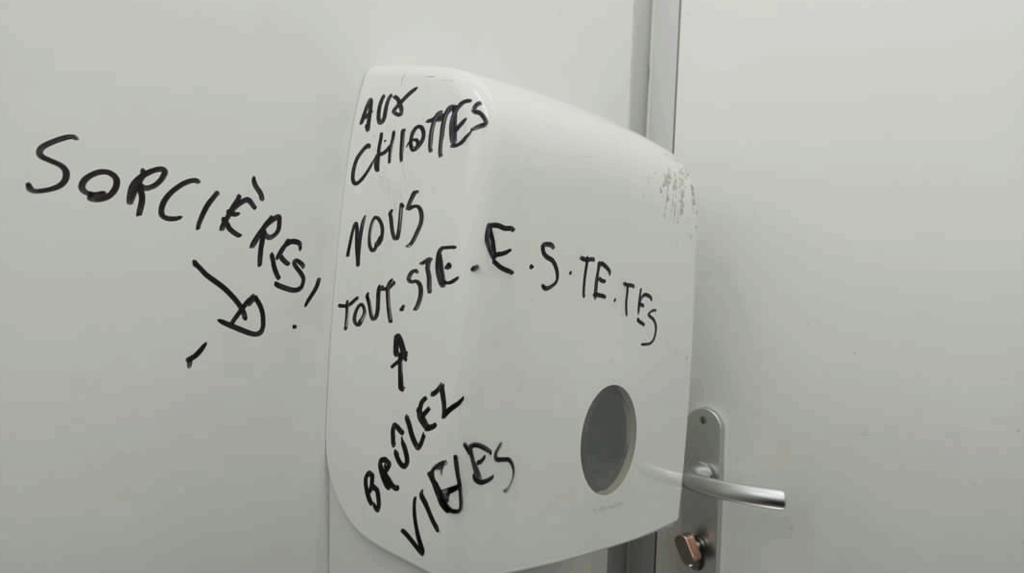 SORCIÈRES!
AUX
CHIOTTES
NOUS
TOUT.STE.E.S.TE.TES
BRÛLEZ